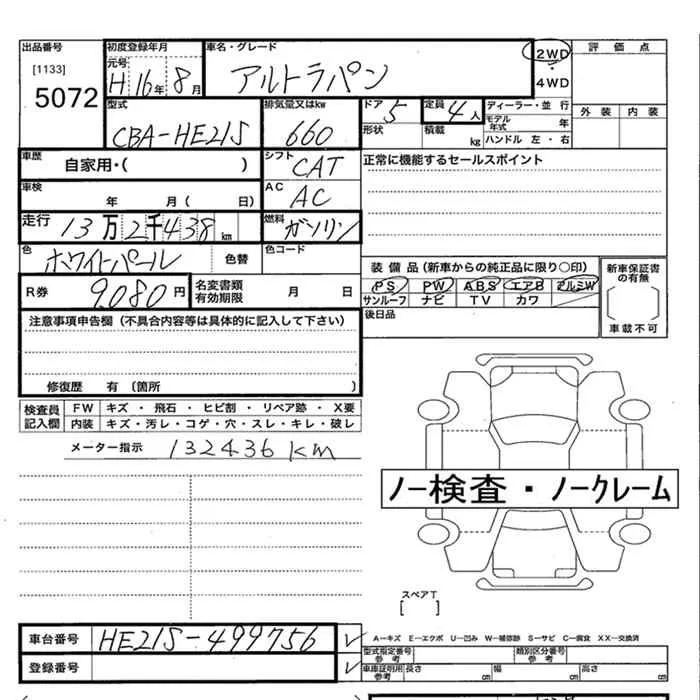 出品番号 初度登録年月 車名・グレード 2WD 評価点
[1133] 元号 ・
5072 H 16年 8月 アルトラパン 4WD
型式 排気量又はkw ドア 5 定員 4人 ディーラー・並行 外装 内装
CBA-HE21S 660 形状 積載 kg モデル年式 年
ハンドル 左・右
車歴 自家用・( ) シフト CAT 正常に機能するセールスポイント
車検 年 月( 日) AC AC
走行 13万2千438km 燃料 ガソリン
色 ホワイトパール 色替 色コード
装備品(新車からの純正品に限り○印) 新車保証書の有無
R券 9,080円 名変書類有効期限 月 日 PS PW ABS エアB アルミW
サンルーフ ナビ TV カワ
注意事項申告欄(不具合内容等は具体的に記入して下さい) 後日品 車載不可
修復歴 有(箇所 )
検査員記入欄 FW キズ・飛石・ヒビ割・リペア跡・X要
内装 キズ・汚レ・コゲ・穴・スレ・キレ・破レ
メーター指示 132436km
ノー検査・ノークレーム
スペアT
[ ]
車台番号 HE21S-499756 A-キズ E-エクボ U-凹み W-補修跡 S-サビ C-腐食 XX-交換済
型式指定番号参考 類別区分番号参考
登録番号 車庫証明用参考 長さ cm 幅 cm 高さ cm